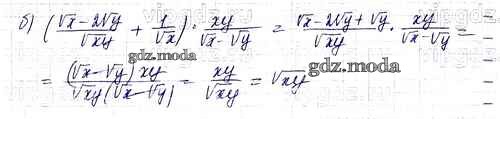 б) (√x-2√y/√xy + 1/√x) · xy/√x-√y = √x-2√y+√y/√xy · xy/√x-√y =
= (√x-√y)xy/√xy(√x-√y) = xy/√xy = √xy
gdz.moda
gdz.moda